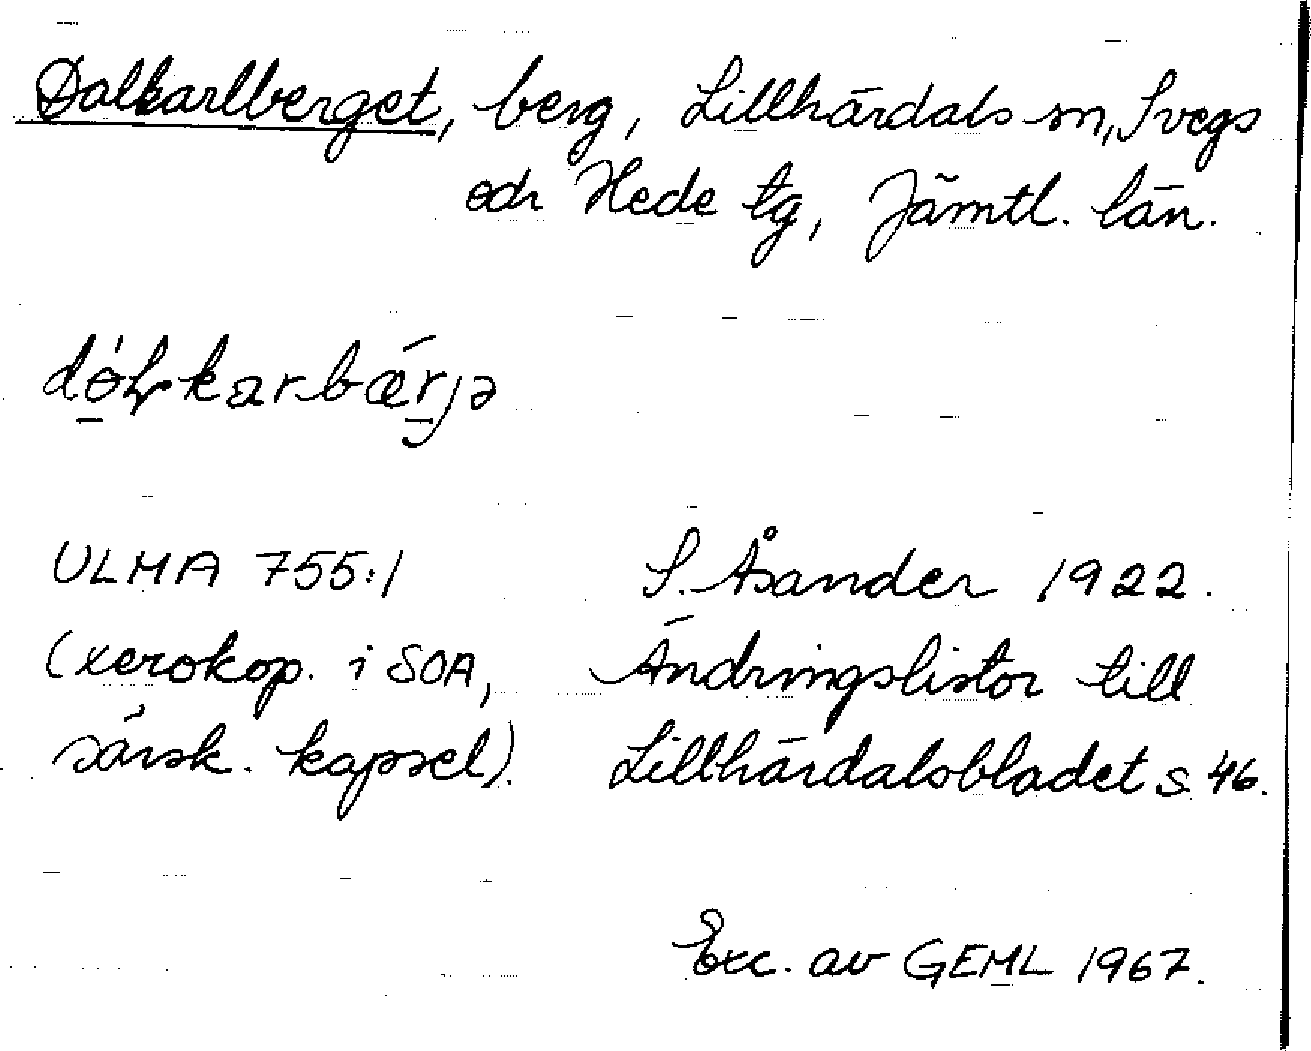 Dalkarlberget, berg, Lillhärdals sn, Svegs
och Hede tg, Jämtl. län.
ULMA 755:1 S. Åsander 1922.
(xerokop. i SOA, Ändringslistor till
särsk. kapsel). Lillhärdalsbladet s 46.
Exc. av GEML 1967.